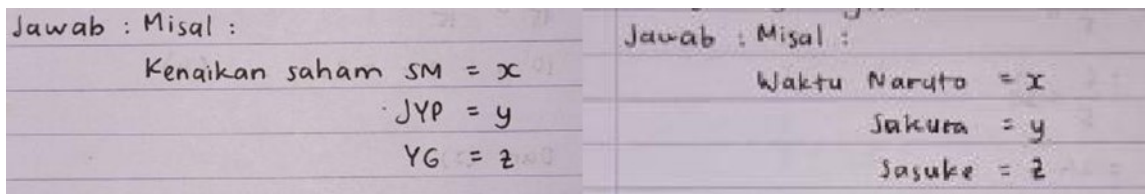 Jawab : Misal :
Kenaikan saham SM = x
JYP = y
YG = z
Jawab : Misal :
Waktu Naruto = x
Sakura = y
Sasuke = z